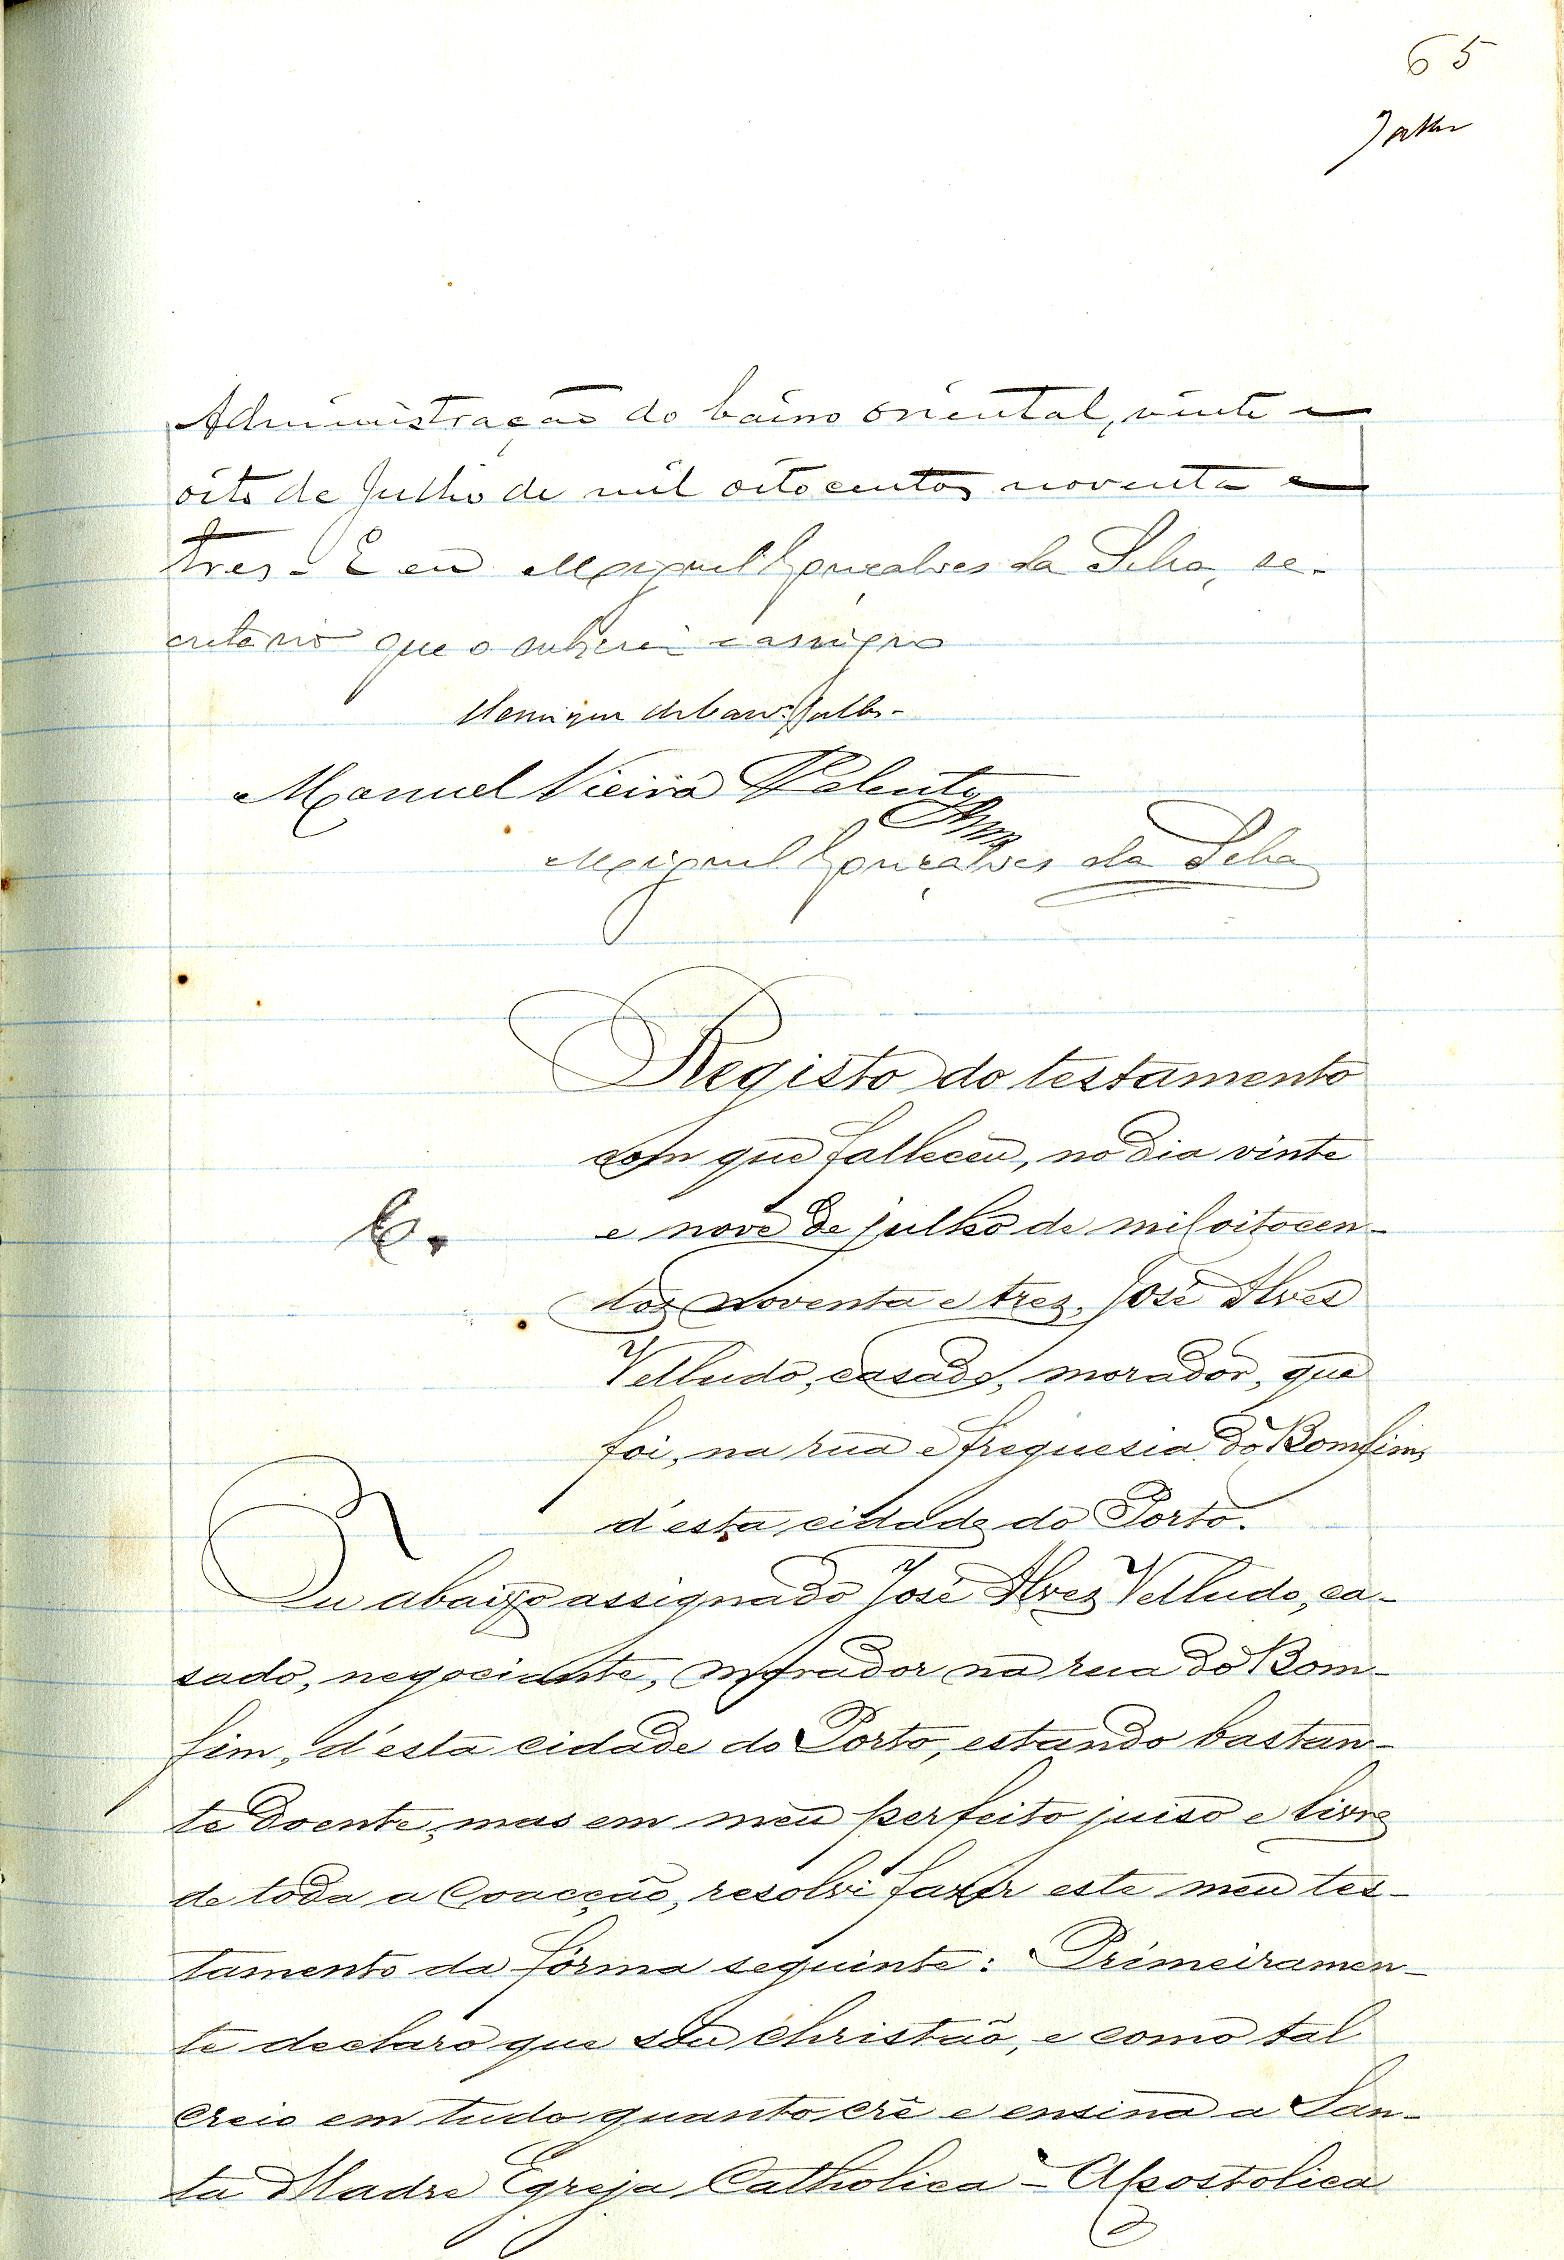 65
Administração do bairro oriental, vinte e
oito de Julho de mil oitocentos noventa e
tres. E eu Miguel Gonçalves da Silva, se-
cretario que o subscrevi e assigno
Manuel Vieira
Miguel Gonçalves da Silva
Registo do testamento
com que falleceu, no dia vinte
e nove de julho de mil oitocen-
tos noventa e trez, José Alves
Velludo, casado, morador, que
foi, na rua e freguesia do Bomfim,
d'esta cidade do Porto.
Eu abaixo assignado José Alvez Velludo, ca-
sado, negociante, morador na rua do Bom-
fim, d'esta cidade do Porto, estando bastan-
te doente, mas em meu perfeito juiso e livre
de toda a Coacção, resolvi fazer este meu tes-
tamento da fórma seguinte: Primeiramen-
te declaro que sou christão, e como tal
creio em tudo quanto crê e ensina a San-
ta Madre Egreja Catholica - Apostolica